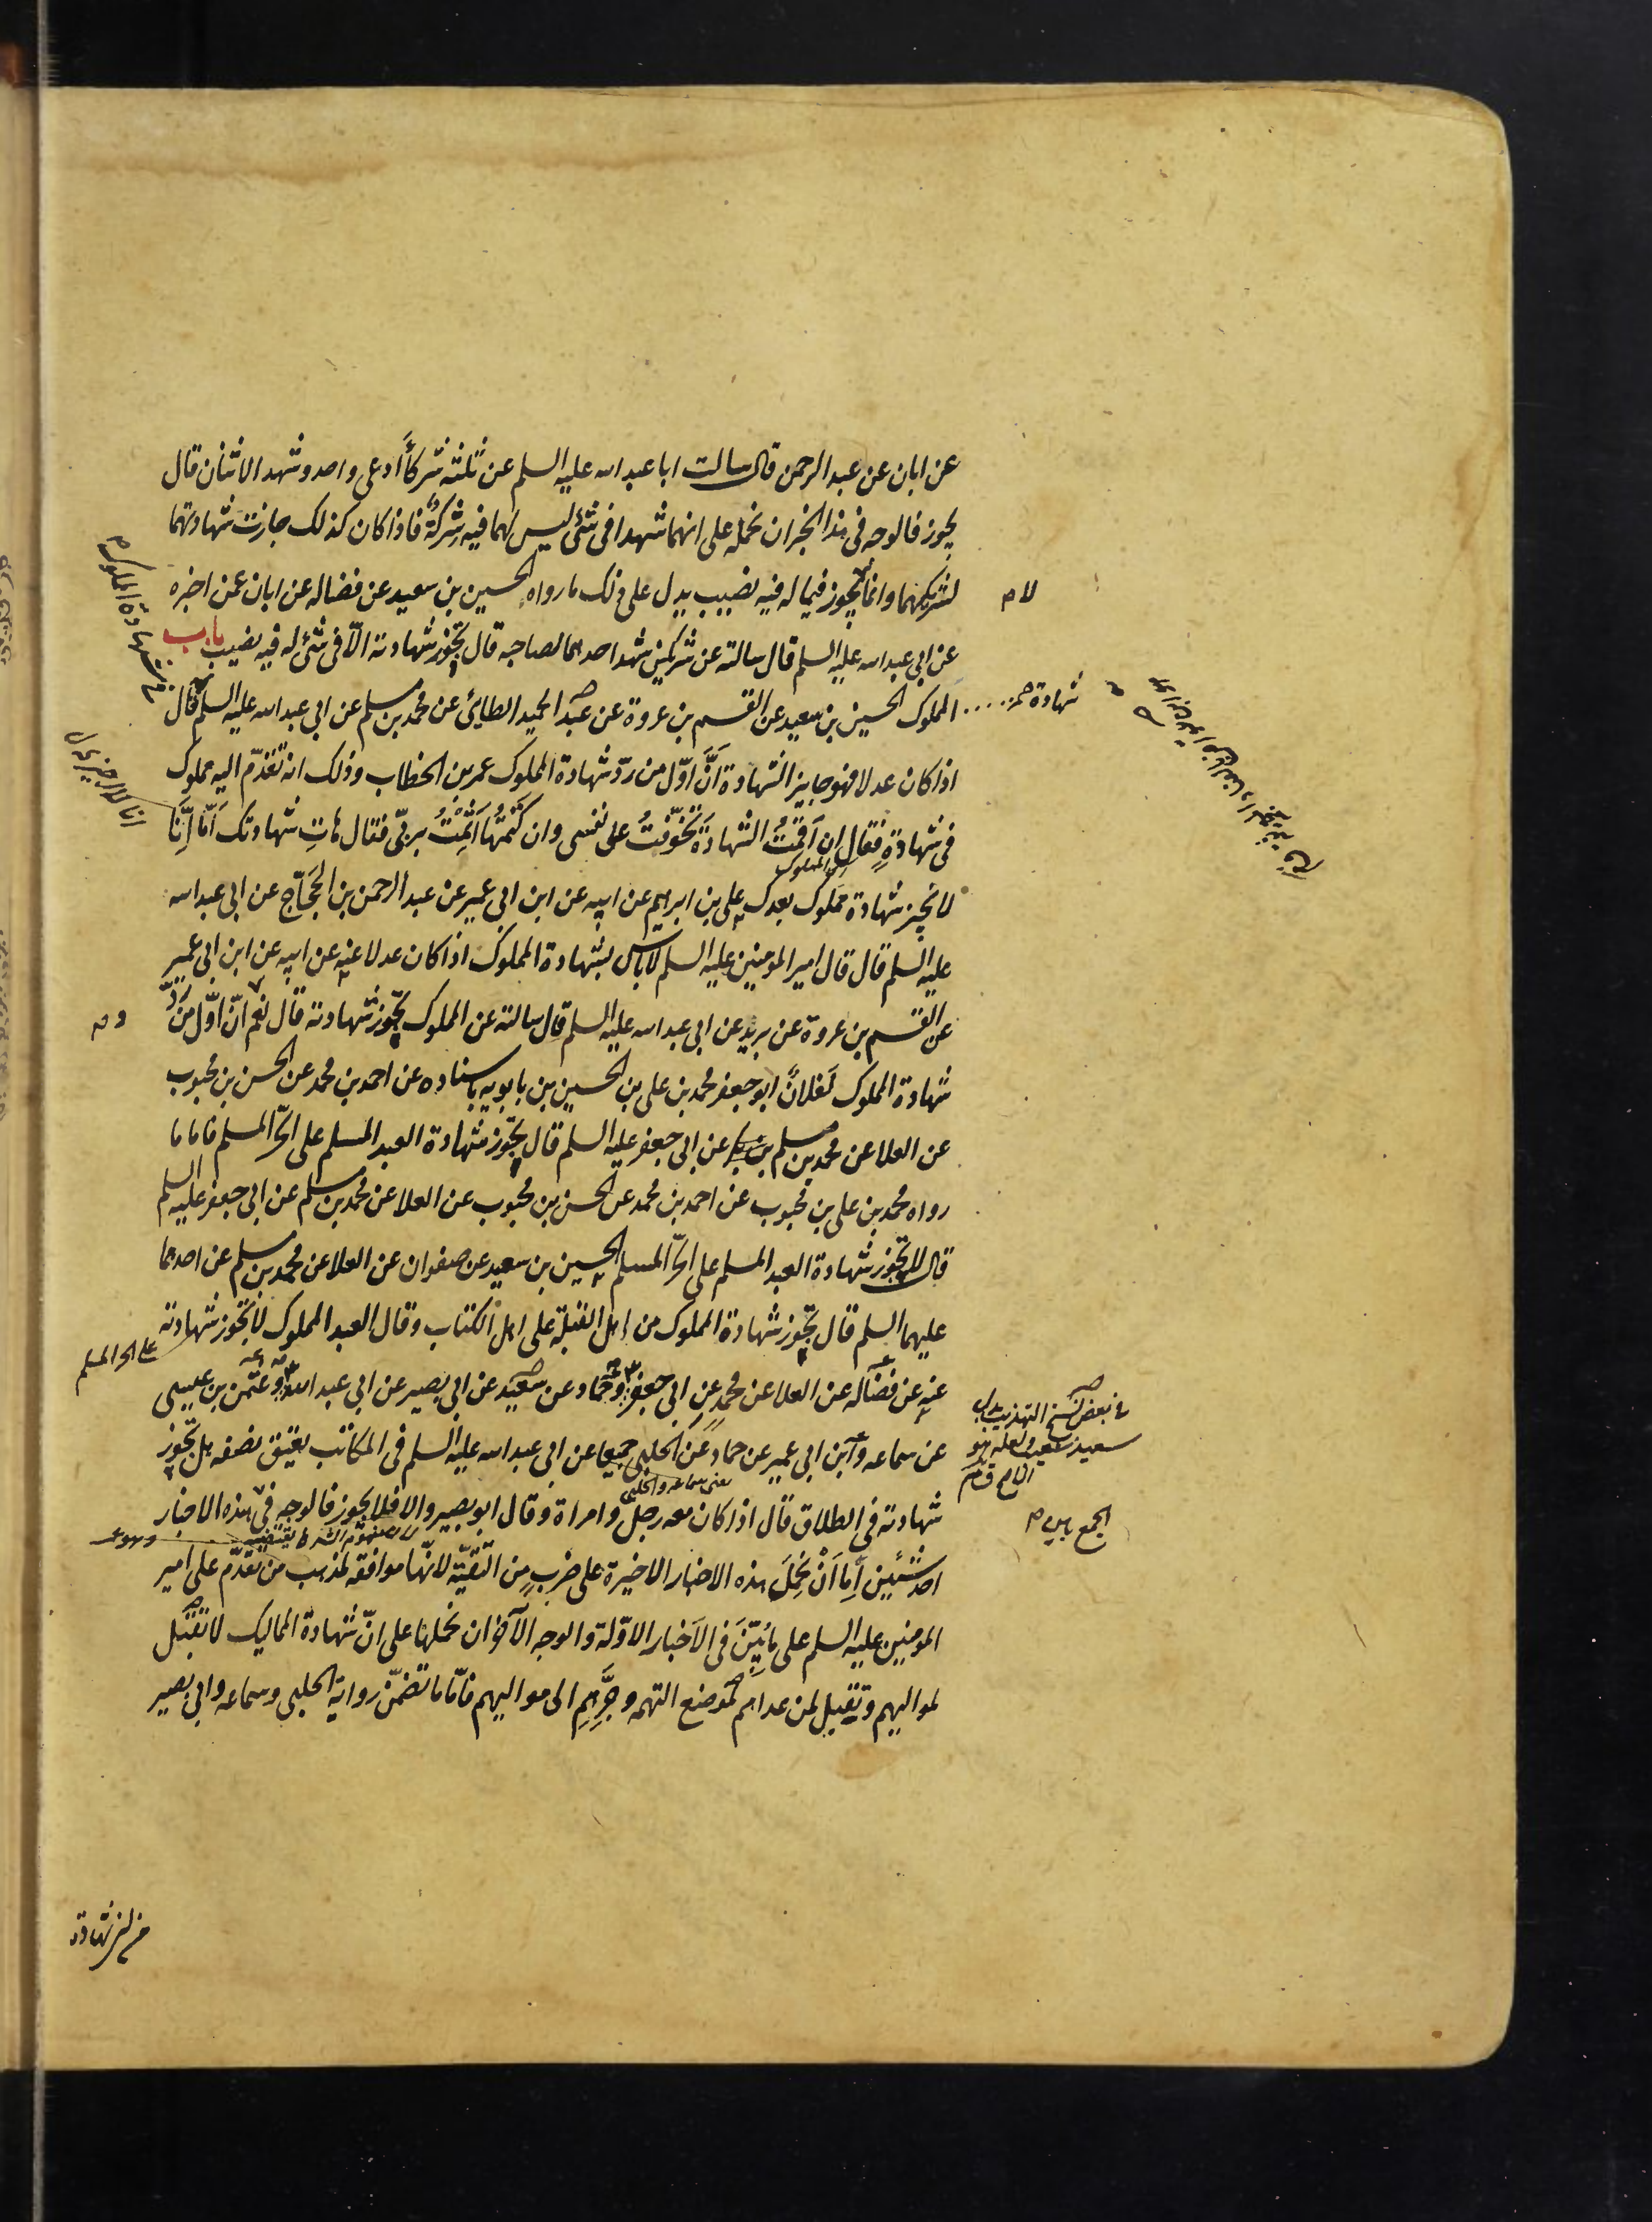 عن ابان عن عبد الرحمن قال سالت ابا عبد الله عليه السلم عن ثلثة شركأ ادعى واحد وشهد الاثنان قال
يجوز فالوجه فى هذا الخبر ان نحمله على انهما شهدا فى شئ ليس لهما فيه شركة فاذا كان كذلك جازت شهادتهما
لشريكهما وانما يجوز فيما له فيه نصيب يدل على ذلك ما رواه الحسين بن سعيد عن فضاله عن ابان عمن اخبره
عن ابى عبد الله عليه السلم قال سالته عن شريكين شهد احدهما لصاحبه قال تجوز شهادته الا فى شئ له فيه نصيب باب
المملوك الحسين بن سعيد عن القسم بن عروة عن عبد الحميد الطائى عن محمد بن مسلم عن ابى عبد الله عليه السلم قال
اذا كان عدلا فهو جايز الشهادة انَّ اوّل من ردّ شهادة المملوك عمر بن الخطاب وذلك انه تقدّم اليه مملوك
فى شهادةٍ فقال ان اقمتُ الشهادَة تخوّفتُ على نفسى وان كتمتُها اثمتُ بربّى فقال هاتِ شهادتك امّا انّا
لا نجيز شهادة مملوك بعدك على بن ابرهيم عن ابيه عن ابن ابى عمير عن عبد الرحمن بن الحجّاج عن ابى عبد الله
عليه السلم قال قال امير المومنين عليه السلم لا باس بشهادة المملوك اذا كان عدلا عنه عن ابيه عن ابن ابى عمير
عن القسم بن عروة عن بريد عن ابى عبد الله عليه السلم قال سالته عن المملوك تجوز شهادته قال نعم انّ اوّل من ردّ
شهادة المملوك لفلانٌ ابو جعفر محمد بن على بن الحسين بن بابويه باسناده عن احمد بن محمد عن الحسن بن محبوب
عن العلا عن محمد بن مسلم عن ابى جعفر عليه السلم قال تجوز شهادة العبد المسلم على الحرّ المسلم فاما ما
رواه محمد بن على بن محبوب عن احمد بن محمد عن الحسن بن محبوب عن العلا عن محمد بن مسلم عن ابى جعفر عليه السلم
قال لا تجوز شهادة العبد المسلم على الحرّ المسلم الحسين بن سعيد عن صفوان عن العلا عن محمد بن مسلم عن احدهما
عليهما السلم قال تجوز شهادة المملوك من اهل القبلة على اهل الكتاب وقال العبد المملوك لا تجوز شهادته
على الحر المسلم
عنه عن فضاله عن العلا عن محمد عن ابى جعفر وحماد عن سعيد عن ابى بصير عن ابى عبد الله وعثمن بن عيسى
عن سماعه وابن ابى عمير عن حماد عن الحلبى جميعا عن ابى عبد الله عليه السلم فى المكاتب يعتق نصفه هل تجوز
يعنى سماعه والحلبى
شهادته فى الطلاق قال اذا كان معه رجل وامراة وقال ابو بصير والا فلا يجوز فالوجه فى هذه الاخبار
احد شئين اِما اَنْ نحملَ هذه الاخبار الاخيرة على ضربٍ من التقيّة لانّها موافقه لمذهب من تقدّم على امير
المومنين عليه السلم على ما بُيّنَ فى الاخبار الاوّلة والوجه الآخر ان نحملها على انّ شهادة المماليك لا تقبل
لمواليهم وتقبل لمن عداهم لموضع التهمه وجرّهم الى مواليهم فامّا ما تضمّن رواية الحلبى وسماعه وابى بصير
لا م
شهادة
فى شهادة المملوك
فى بعض نسخ التهذيب بدل
سعيد شعيب ولعله هو
الجمع بين م
من الشهادة